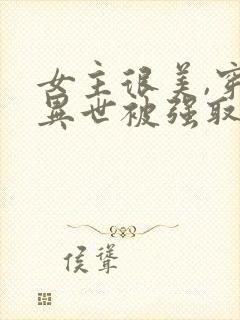 女主很美,穿
異世被强取
侯聳